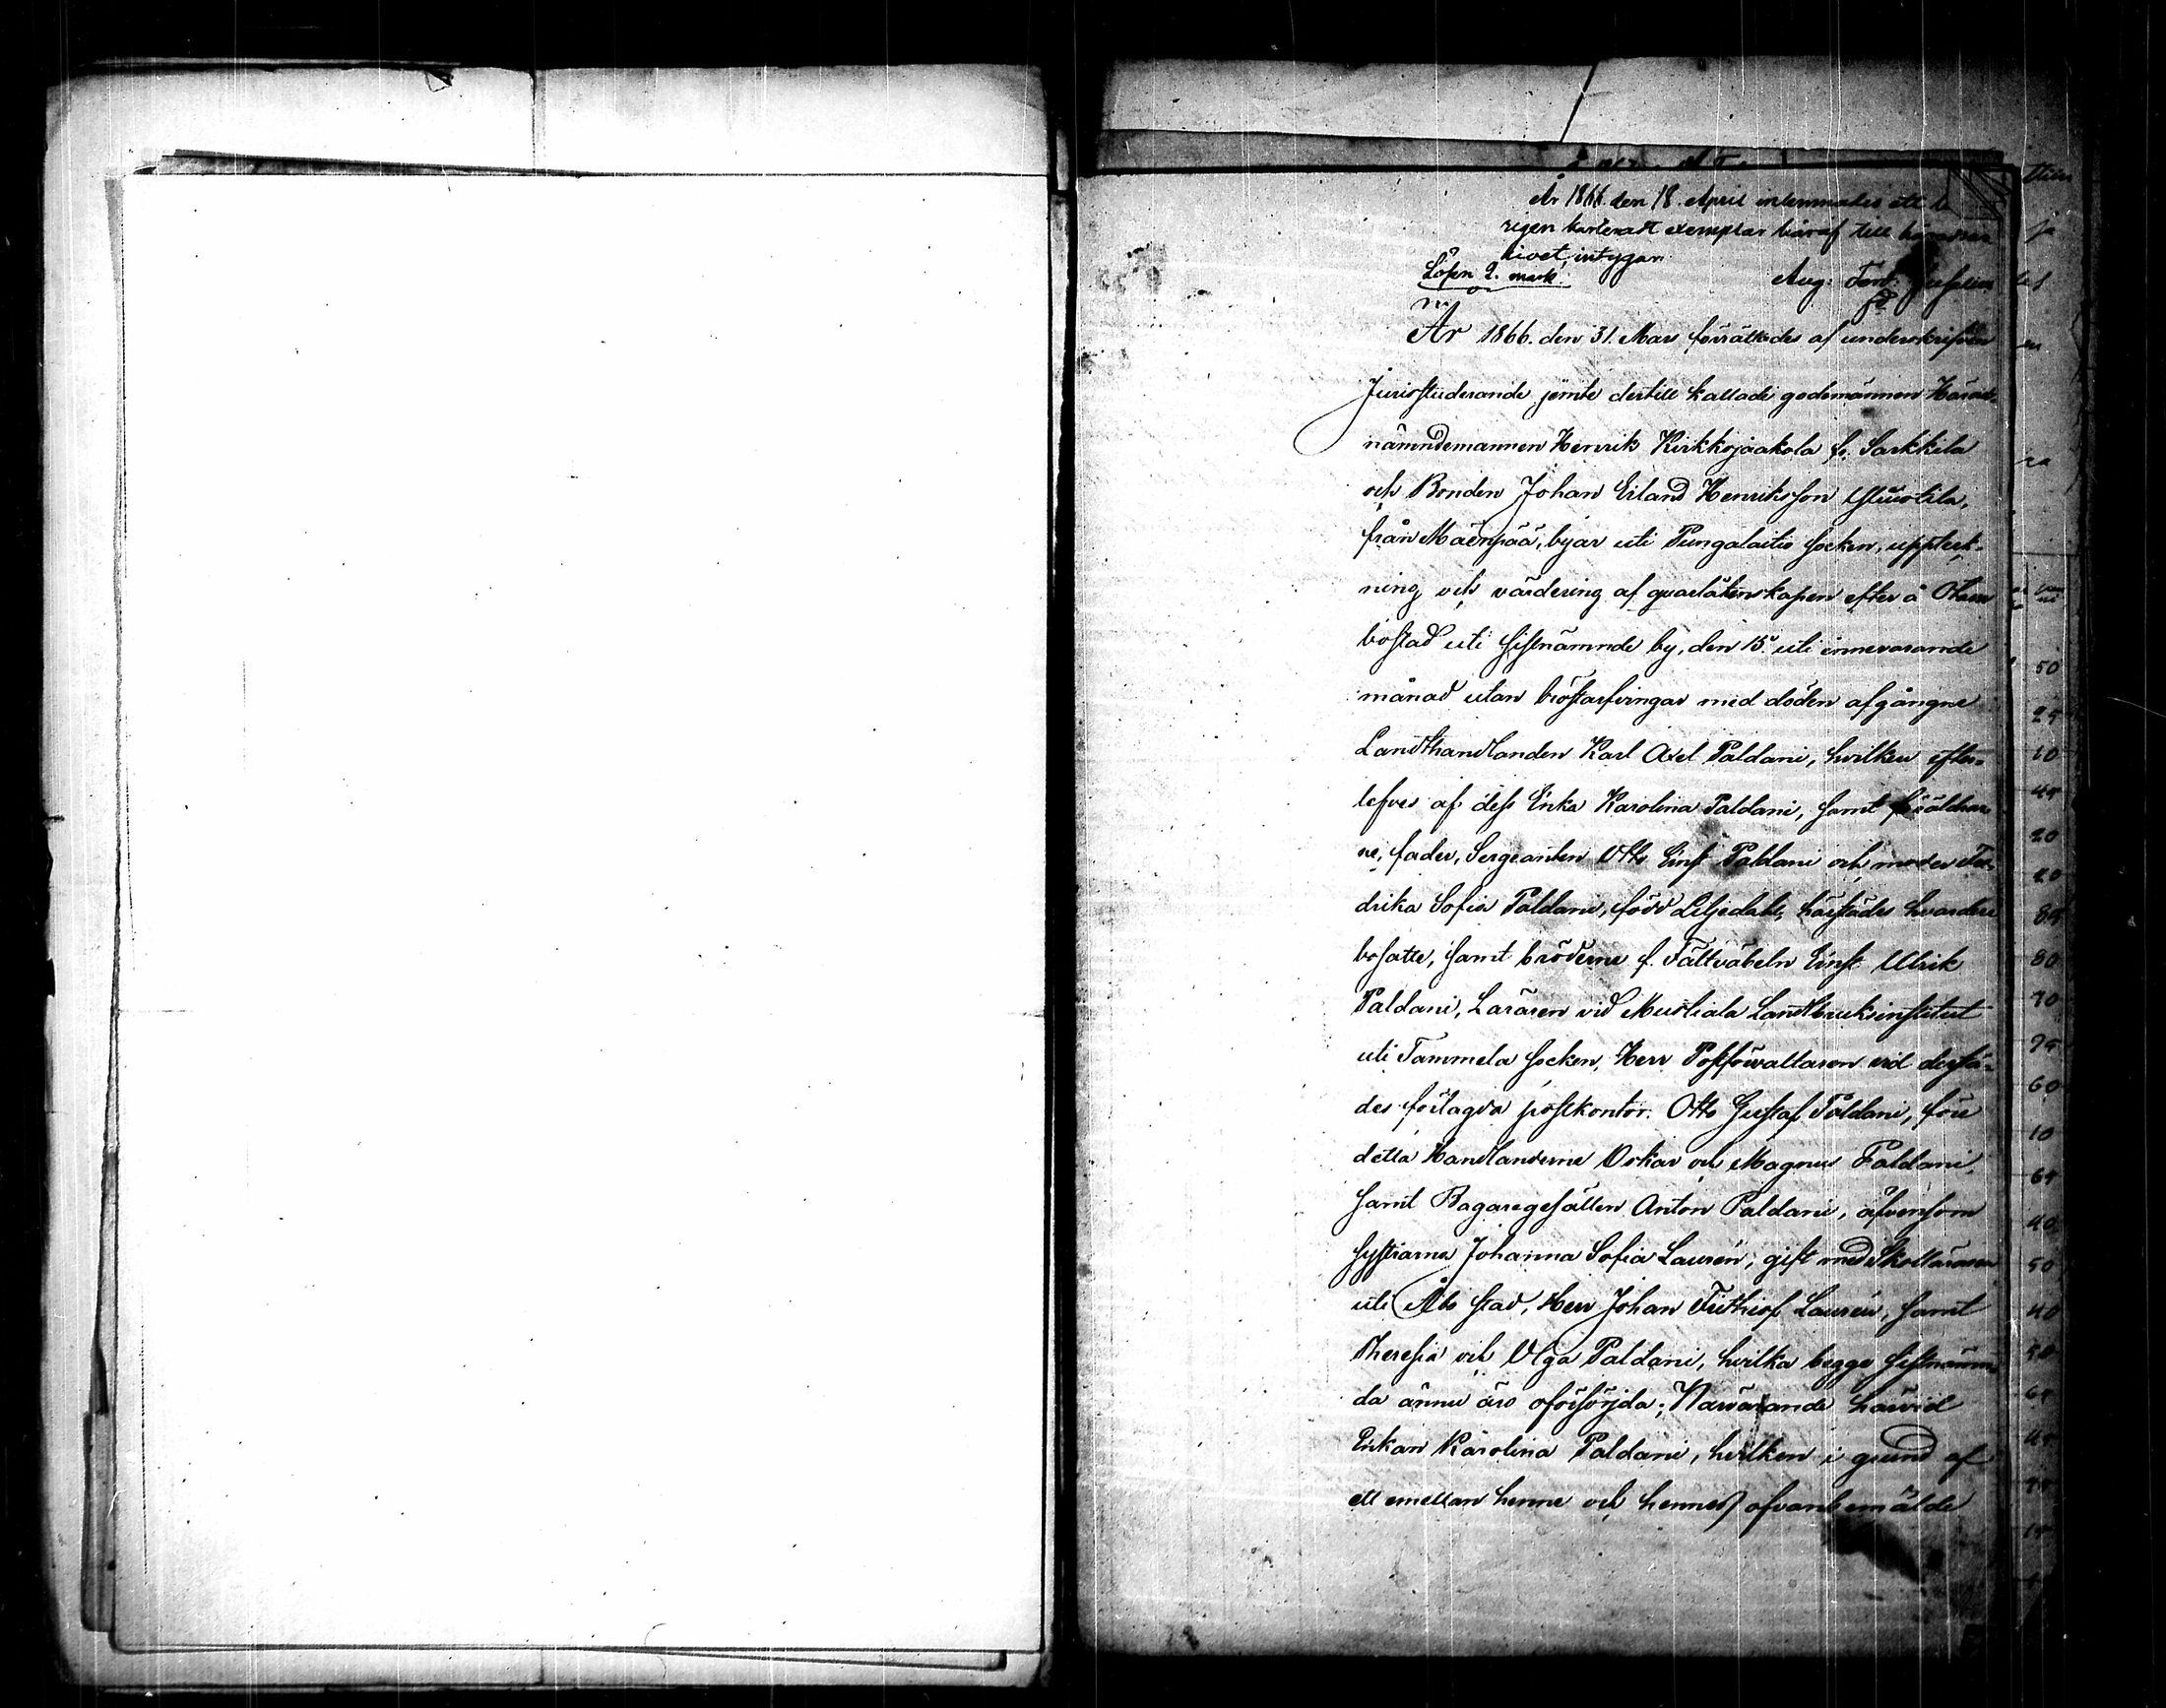 År 1866. den 18. April inlemnades ett
exemplar häraf till
kivet, intygar.
Lösen 2. mark. Aug. Ferd.
År 1866. den 31. Mars förrättades af underskrifven
Jurisstuderande jemte dertill kallade godemännen Härads-
nämndemannen Henrik Kirkkojaakola fr. Sarkkila
och Bonden Johan Erland Henriksson
från Mäenpää, byar uti Pungalaitio socken, uppteck-
ning och värdering af qvarlåtenskapen efter å
bostad uti sistnämnde by, den 15. uti innevarande
månad utan bröstarfvingar med döden afgångne
Landthandlanden Karl Axel Paldani, hvilken efter-
lefves af dess Enka Karolina Paldani, samt föräldrar-
ne, fader, Sergeanten Otto Ernst Paldani och moder Fre-
drika Sofia Paldani, född Liljedahl, härstädes hvardera
bosatte, samt bröderne f. Fältväbeln Ernst Ulrik
Paldani, Läraren vid Mustiala Landtbruksinstitut
uti Tammela socken, Herr Postförvaltaren vid derstä-
des förlagda postkontor. Otto Gustaf Paldani, före
detta Handlanderne Oskar och Magnus Paldani,
samt Bagaregesällen Anton Paldani, äfvensom
systrarna Johanna Sofia Laurén, gift med Skolläraren
uti Åbo stad, Herr Johan Frithiof Laurén, samt
Theresia och Olga Paldani, hvilka begge sistnämn-
da ännu äro oförsörjda; Närvarande härvid
Enkan Karolina Paldani, hvilken i grund af
ett emellan henne och hennes ofvanbemälde